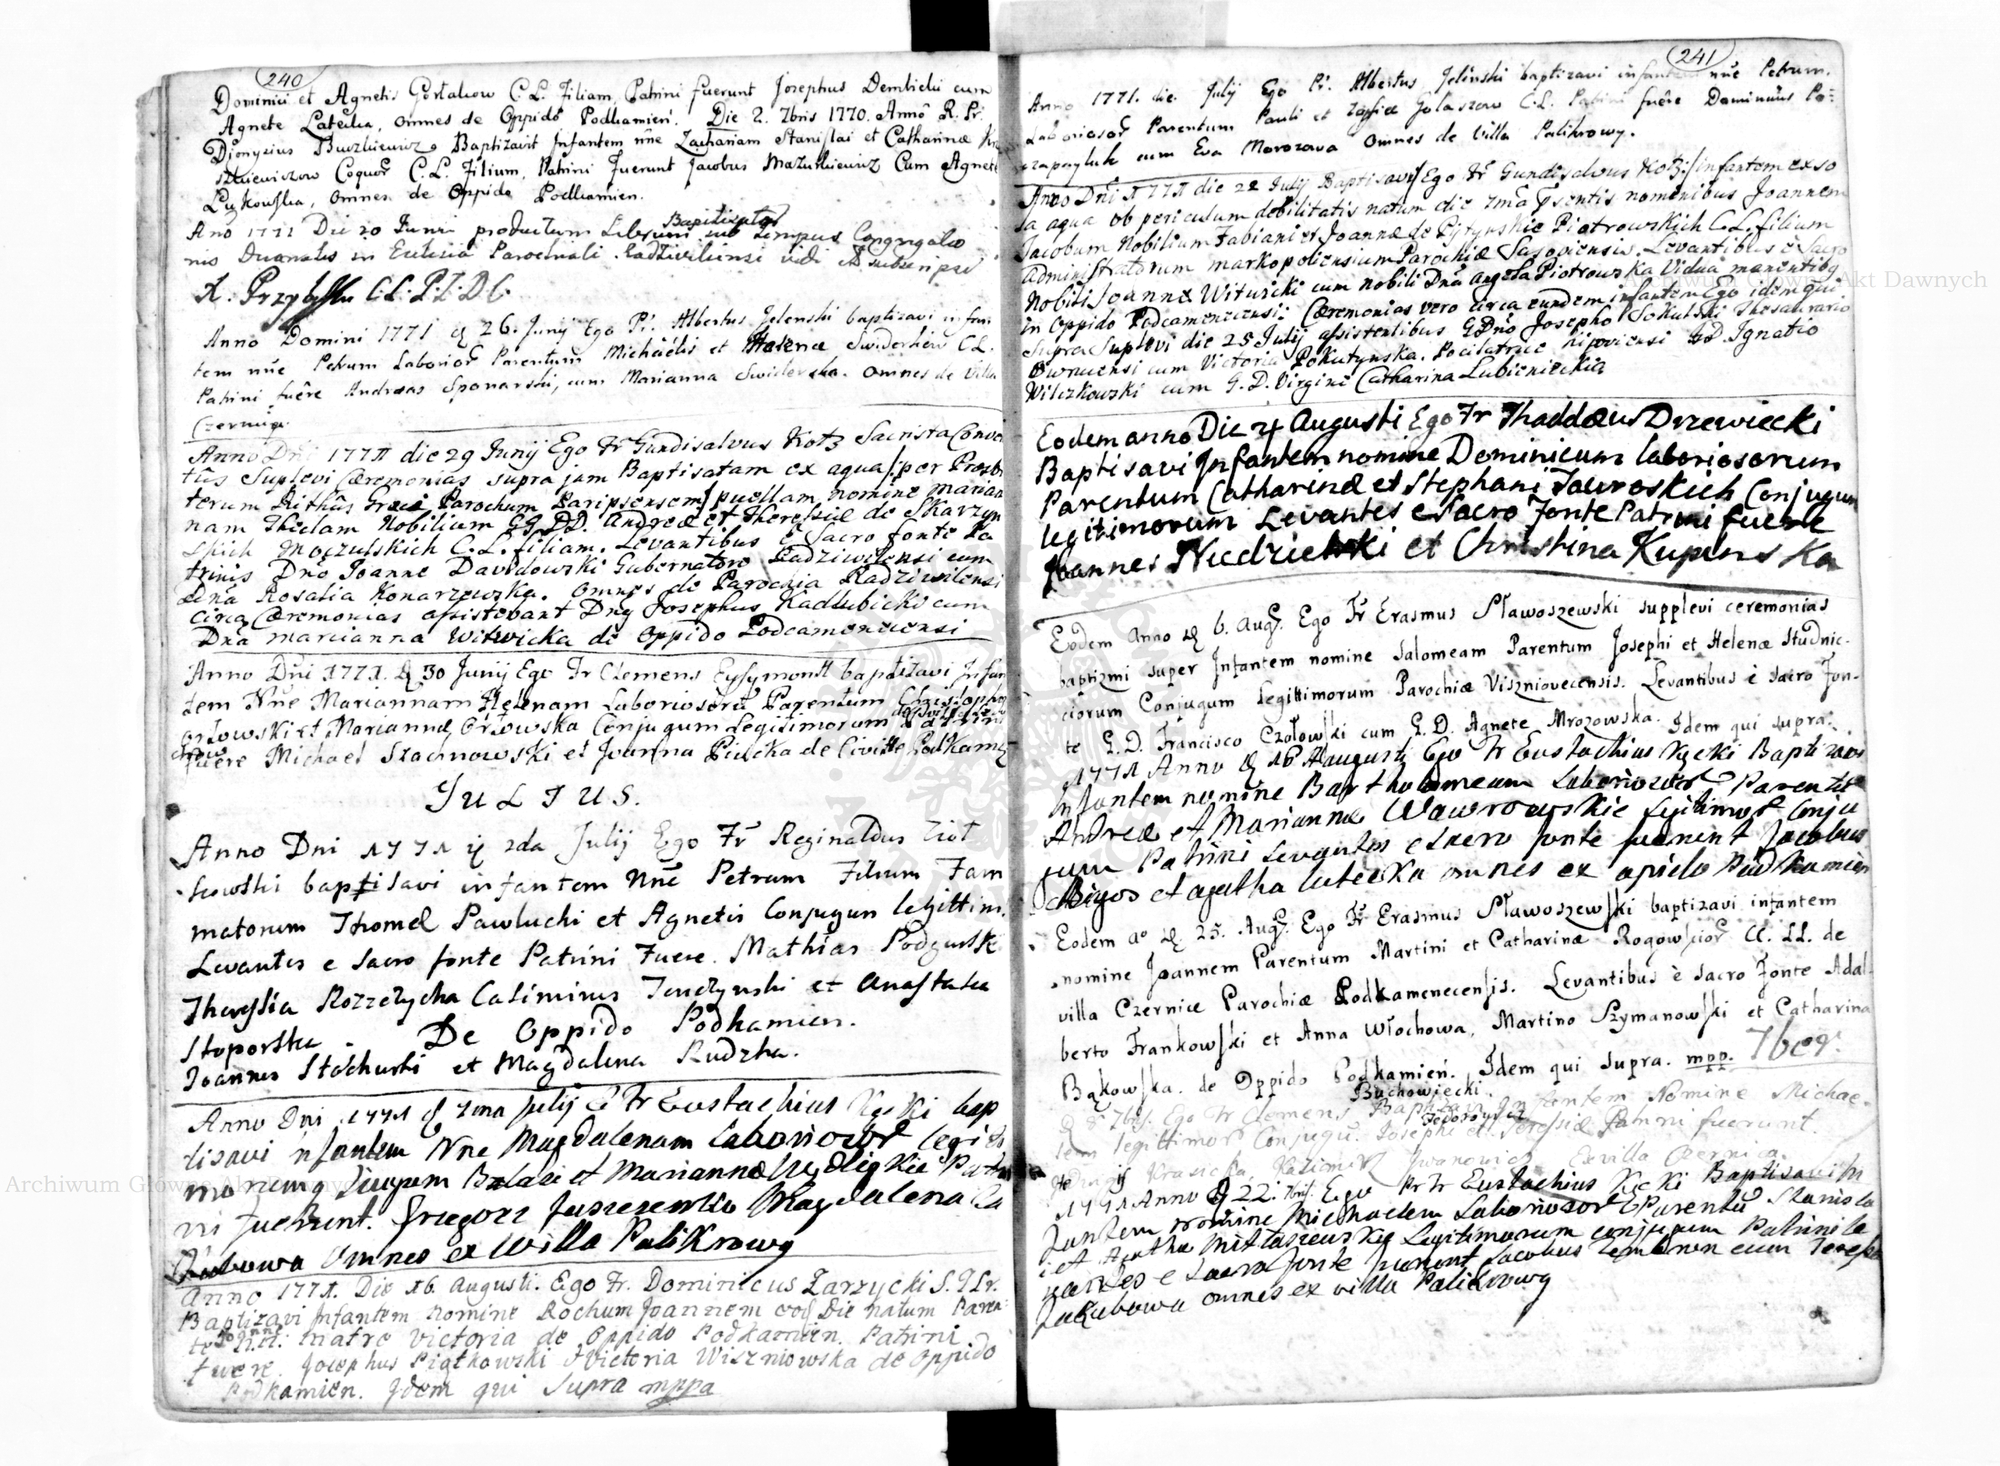 240
Dominici et Agnetis Gortatiow C.L. Filiam, Patrini fuerunt Josephus Dembicki cum
Agnete Latecka, omnes de Oppido Podkamien. Die 2. 7bris 1770. Anno R. Pr.
Dionyzius Buczkiewicz Baptizavit Infantem nne Zachariam Stanislai et Catharinae
Coquor C.L. Filium, Patrini fuerunt Jacobus Mazurkiewicz cum Agnete
Lyzkowska, omnes de Oppido Podkamien.
Baptisator
Ano 1771 Die 20 Junii productum Librum sub tempus Congregatio
nis Decanalis in Ecclesia Parochiali Radziviliensi vidi et subscripsi
Anno Domini 1771 d 26. Junij Ego Pr. Albertus Jelenski baptizavi infan
tem nne Petrum Laborior Parentum Michaelis et Helenae Swiderkow C.L.
Patrini fuere Andreas Sponarski, cum Marianna Swiderska. omnes de Villa
Czernica.
Anno Dni 1771 die 29 Junij Ego Fr Gundisalvus Kotz Sacrista Conve
tus Suplevi Caeremonias supra jam Baptisatam ex aqua per Presbi
terum Rithus Graeci Parochum Paripsensem puellam nomine Marian
nam Theclam Nobilium GG. DD. Andreae et Theresiae de Skarzyn
skich Moczulskich C.L. filiam. Levantibus e Sacro fonte Pa
trinis Dno Joanne Davidowski Gubernatore Radzivilensi cum
Dna Rosalia Konarzewska. omnes de Parochia Radzivilensi
circa Caeremonias assistebant Dns Josephus Kadlubicki cum
Dna Marcianna Witwicka de Oppido Podcamenecensi
Anno Dni 1771. d 30 Junij Ego Fr Clemens Eysymontt baptizavi Infan
tem Nne Mariannam Helenam Laboriosoru Parentum Christophor
Orlowski et Mariannae Orlowska Conjugum Legitimorum
fuere Michael Stachnowski et Joanna Piucka de Civitte Podkame
JULIUS.
Anno Dni 1771 d 2da Julij Ego Fr Reginaldus Ziol
kowski baptisavi infantem Nne Petrum Filium Fam
matorum Thomae Pawluchi et Agnetis Conjugun legittim.
Levantes e Sacro fonte Patrini Fuere. Mathias Podgurski
Theresia Rozzczycha Casimirus Tenczynski et Anastasia
Stoporska. De Oppido Podkamien.
Joannes Stochurski et Magdalena Rudzka.
Anno Dni 1771 d 7ma Julij E Fr Eustachius Kecki bap
tisavi nfantem Nne Magdalenam Laboriosor legiti
morumq Jugum Balasi et Mariannae Patri
ni fuerunt. Gregori Juszczenko Magdalena Ja
kubowa Omnes ex Willa Palikrowy
Anno 1771. Die 16. Augusti. Ego Fr. Dominicus Zarzycki S.T.Lr.
Baptizavi Infantem Nomine Rochum Joannem eod Die natum Paren
matre Victoria de Oppido Podkamien. Patrini
fuere. Josephus Piątkowski Victoria Wiszniowska de Oppido
Podkamien. Idem qui Supra mppa
241
Anno 1771. die Julij Ego Pr. Albertus Jelinski baptizavi infantem nne Petrum.
Laboriosor Parentum Pauli et Zophiae Golaszow C.L. Patrini fuere Dominicus Po=
trapayluk cum Eva Morozowa omnes de Villa Palikrowy.
Anno Dni 1771 die 22 Julij Baptisavi Ego Fr Gundisalvus Kotz infantem ex so
la aqua ob periculum debilitatis natum die 7ma Psentis nominibus Joannem
Jacobum Nobilium Fabiani et Joannae de Pyrynskie Piotrowskich C.L. filium
Administratorum Markopoliensium Parochiae Sasoviensis. Levantibus e Sacro
Nobili Joanne Witwicki cum nobili Dna Angela Piotrowska Vidua manentibq
in Oppido Podcamenecensi: Caeremonias vero circa eundem infantem Ego idem qui
supra Suplevi die 25 Julij assistentibus G Dno Josepho Sokulski Thesaurario
Owrucensi cum Victoria Pokutynska. Pocilatrice Kijoviensi G.D. Ignatio
Wilczkowski cum G.D. Virgine Catharina Lubieniecka
Eodem anno Die 4 Augusti Ego Fr Thaddaeus Drzewiecki
Baptisavi Infantem nomine Dominicum laboriosorum
Parentum Catharinae et Stephani Jaworskich Conjugum
legitimorum Levantes e Sacro Fonte Patrini fuere
Joannes Niedzielski et Christina Kupinska
Eodem Anno d 6. Aug. Ego Fr Erasmus Sławoszewski supplevi ceremonias
baptizmi super Infantem nomine Salomeam Parentum Josephi et Helenae Studnic-
ciorum Conjugum legittimorum Parochiae Viszniovecensis. Levantibus è Sacro Fon-
te G.D. Francisco Czołowski cum G.D. Agnete Mrozowska. Idem qui supra.
1771 Anno d 16 Augusti Ego Fr Eustachius Kecki Baptizavi
Infantem nomine Bartholomeum Laboriosor Parentu
Andreae et Mariannae Wawrowskie Legitimor Conju
gum Patrini Levantes e Sacro fonte fuerunt Jacobus
Bigos et Agatha Lutecka omnes ex opido Podkamien
Eodem ao d 25. Aug. Ego Fr Erasmus Sławoszewski baptizavi infantem
nomine Joannem Parentum Martini et Catharinae Rogowscior CC. LL. de
villa Czernice Parochiae Podkamenecensis. Levantibus è Sacro Fonte Adal-
berto Frankowski et Anna Włochowa, Martino Szymanowski et Catharina
Bąkowska. de Oppido Podkamień. Idem qui supra. mpp. 7ber.
Buchowiecki
d 8 7bris Ego Fr Clemens Baptizavi Infantem Nomine Michae-
lem legittimor Conjugu. Josephi et Teresiae Patrini fuerunt.
Krasicka Kazimirz Iwanowicz Exvilla Czernica.
1771 Anno d 22. 7bris Ego Fr Eustachius Kecki Baptisavi In
fantem nomine Michaelem Laboriosor Parentu Stanisla
i et Agathae Mitlaszewskie Legitimorum conjugum Patrini le
vantes e Sacro fonte fuerunt Jacobus cum Teresia
Jakubowa omnes ex villa Palikrowy
Archiwum Główne Akt Dawnych
Archiwum Główne Akt Dawnych